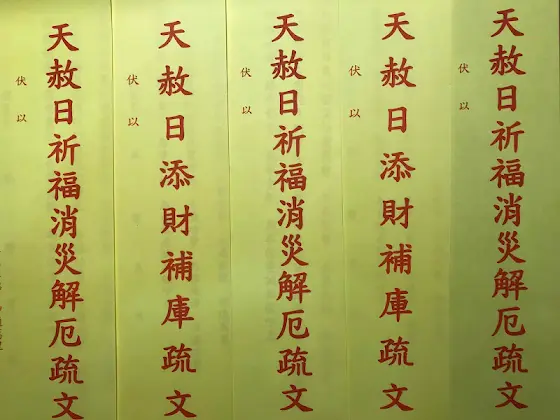 天赦日祈福消災解厄疏文
伏以
天赦日添財補庫疏文
伏以
天赦日祈福消災解厄疏文
伏以
天赦日添財補庫疏文
伏以
天赦日祈福消災解厄疏文